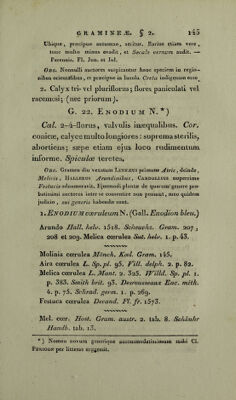 GRAMINEÆ. § 2. 145
Ubique, præcipue autumno, seritur. Rarius etiam vere,
tunc multo minus evadit, et Secale vernum audit. —
Perennis. Fl. Jun. et Jul.
OBS. Nonnulli auctores suspicantur hanc speciem in regio-
nibus orientalibus, et præcipue in Insula Creta indigenam esse.
2. Calyx tri-vel pluriflorus; flores paniculati vel
racemosi; (nec priorum).
G. 22. ENODIUM N. *)
Cal. 2-4-florus, valvulis inæqualibus. Cor.
conicæ, calyce multo longiores: suprema sterilis,
abortiens; sæpe etiam ejus loco rudimentum
informe. Spiculæ teretes.
OBS. Gramen diu vexatum LINNÆUS primum Airis, deinde
Melicis, HALLERUS Arundinibus, CANDOLLIUS nuperrime
Festucis adnumeravit. Ejusmodi plantæ de quarum genere pes-
tantissimi auctores inter se convenire non possunt, meo quidem
judicio, sui generis habendæ sunt.
1. ENODIUM cœruleum N. (Gall. Enodion bleu.)
Arundo Hall. helv. 1518. Scheuchz. Gram. 207,
208 et 209. Melica cœrulea Sut. helv. 1. p. 43.
Molinia cœrulea Mönch. Kœl. Gram. 145.
Aira cœrulea L. Sp. pl. 95. Vill. delph. 2. p. 82.
Melica cœrulea L. Mant. 2. 325. Willd. Sp. pl. 1.
p. 383. Smith brit. 93. Desrousseaux Enc. méth.
4. p. 75. Schrad. germ. 1. p. 269.
Festuca cœrulea Decand. Fl. fr. 1573.
Mel. cœr. Host. Gram. austr. 2. tab. 8. Schkuhr
Handb. tab. 13.
*) Nomen novum genericum accommodatissimum mihi Cl.
PERSOON per litteras suggessit.